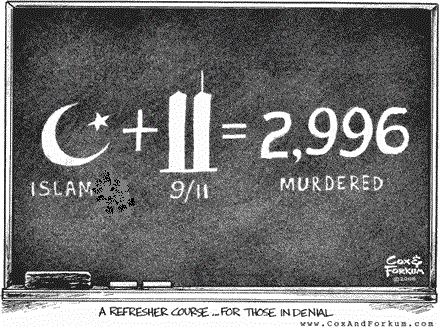 + = 2,996
ISLAM 9/11 MURDERED
COX &
FORKUM
©2006
A REFRESHER COURSE...FOR THOSE IN DENIAL
www.CoxAndForkum.com